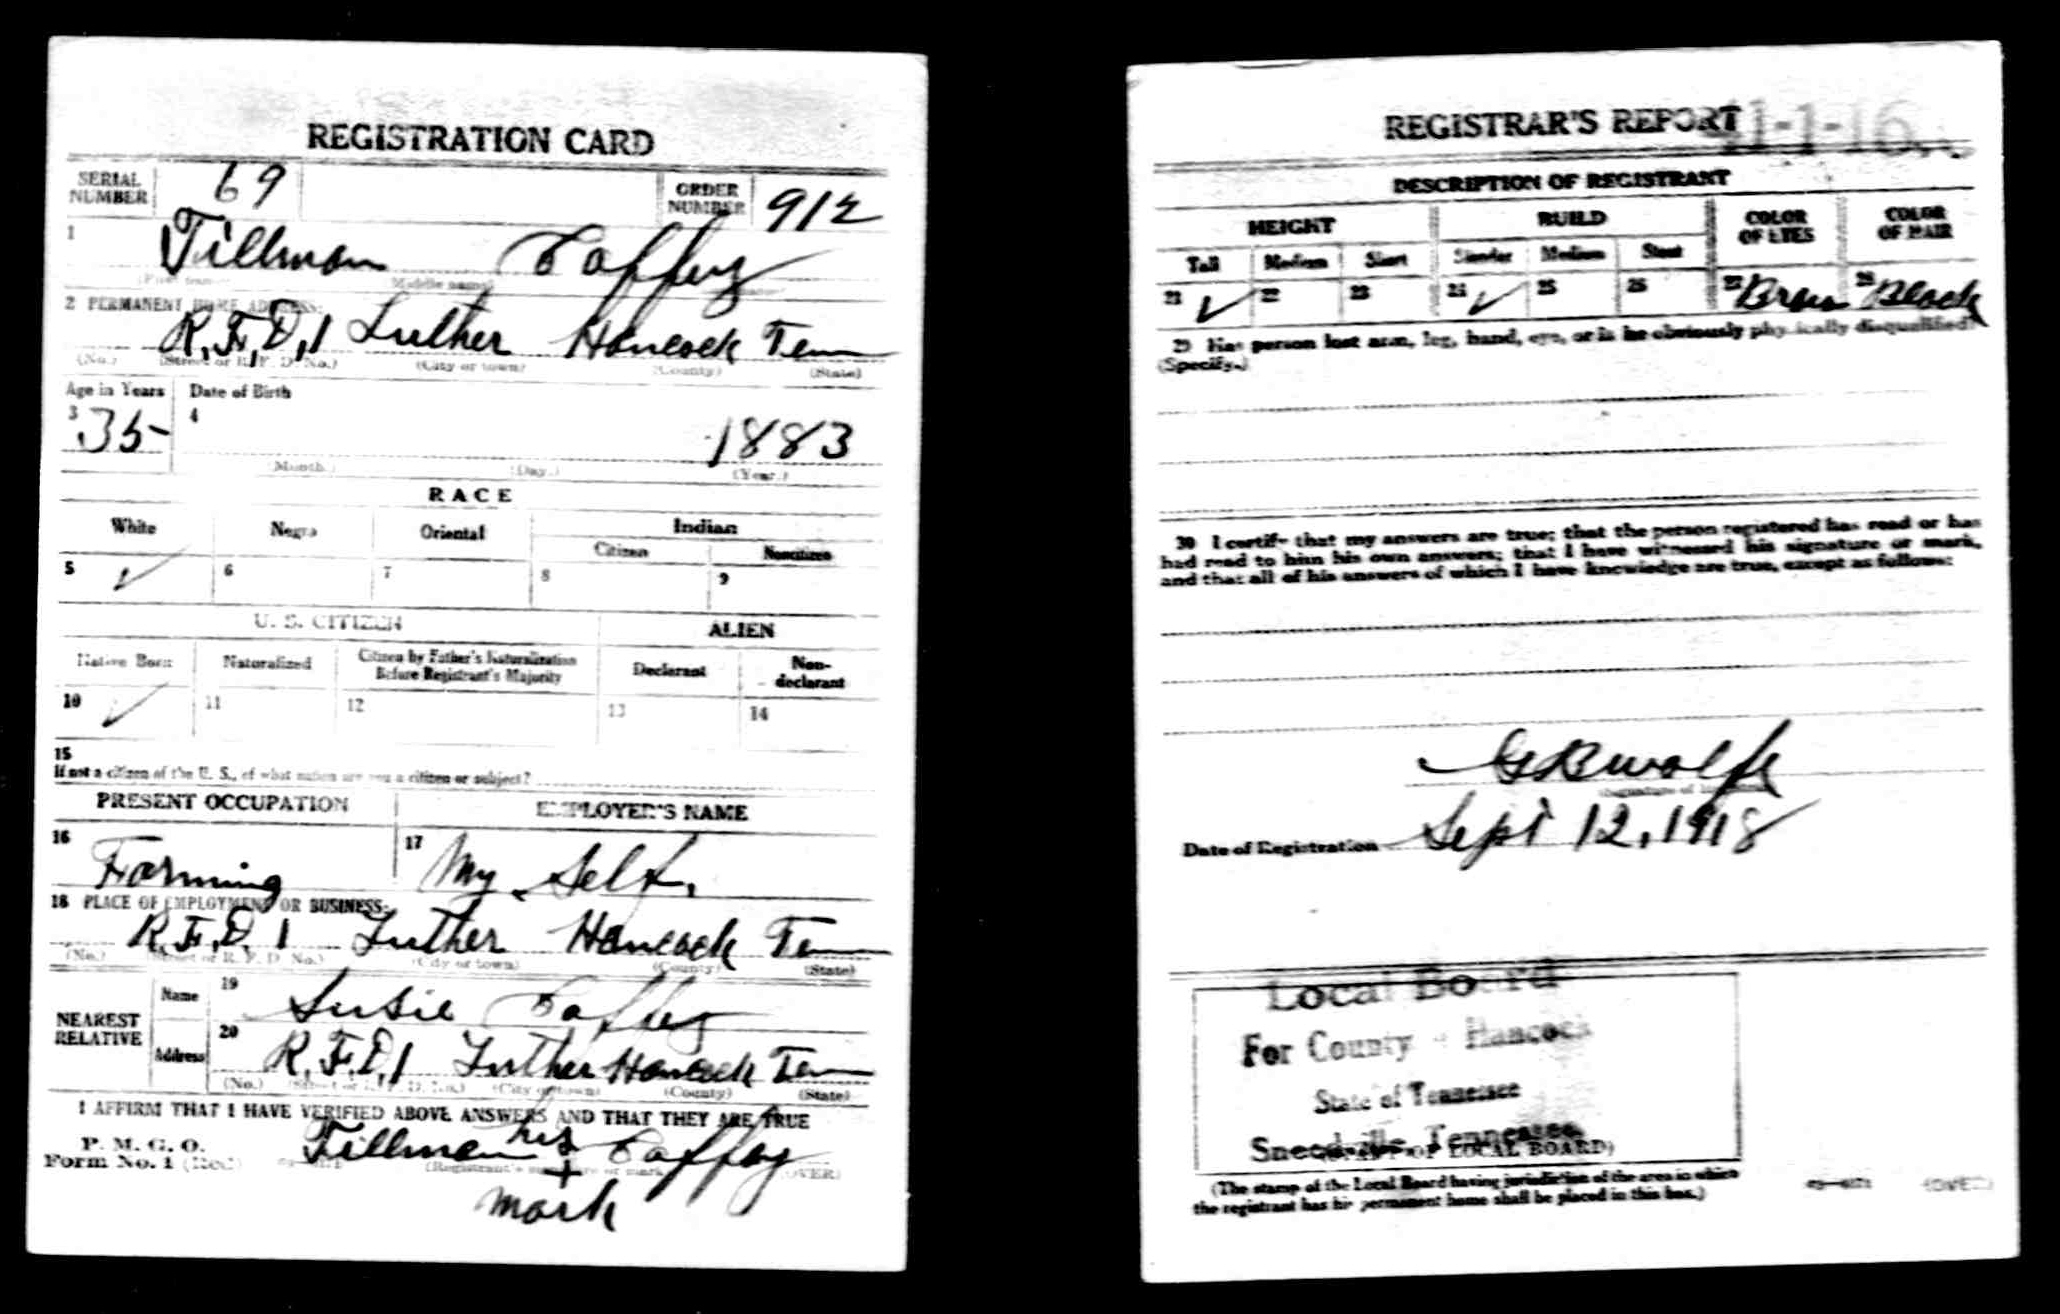 REGISTRATION CARD
SERIAL NUMBER 69 ORDER NUMBER 912
1 Tillman Caffey
(First name) (Middle name)
2 PERMANENT HOME ADDRESS:
R.F.D.1 Luther Hancock Tenn
(No.) (Street or R. F. D. No.) (City or town) (County) (State)
Age in Years Date of Birth
3 35 4 1883
(Month.) (Day.) (Year.)
RACE
White Negro Oriental Indian
Citizen Noncitizen
5 ✓ 6 7 8 9
U. S. CITIZEN ALIEN
Native Born Naturalized Citizen by Father's Naturalization Before Registrant's Majority Declarant Non-declarant
10 ✓ 11 12 13 14
15
If not a citizen of the U. S., of what nation are you a citizen or subject?
PRESENT OCCUPATION EMPLOYER'S NAME
16 Farming 17 My Self.
18 PLACE OF EMPLOYMENT OR BUSINESS:
R.F.D. 1 Luther Hancock Tenn
(No.) (Street or R. F. D. No.) (City or town) (County) (State)
NEAREST RELATIVE Name 19 Susie Caffey
Address 20 R.F.D.1 Luther Hancock Tenn
(No.) (Street or R. F. D. No.) (City or town) (County) (State)
I AFFIRM THAT I HAVE VERIFIED ABOVE ANSWERS AND THAT THEY ARE TRUE
P. M. G. O.
Form No. 1 (Red) Tillman his + mark Caffey
(Registrant's signature or mark) (OVER)
REGISTRAR'S REPORT
DESCRIPTION OF REGISTRANT
HEIGHT BUILD COLOR OF EYES COLOR OF HAIR
Tall Medium Short Slender Medium Stout
21 ✓ 22 23 24 ✓ 25 26 27 28 Black
29 Has person lost arm, leg, hand, eye, or is he obviously physically disqualified?
(Specify.)
30 I certify that my answers are true; that the person registered has read or has
had read to him his own answers; that I have witnessed his signature or mark,
and that all of his answers of which I have knowledge are true, except as follows:
G B Wolfe
Date of Registration Sept 12, 1918
Local Board
For County Hancock
State of Tennessee
Sneedville, Tennessee
(STAMP OF LOCAL BOARD)
(The stamp of the Local Board having jurisdiction of the area in which
the registrant has his permanent home shall be placed in this box.)
(OVER)